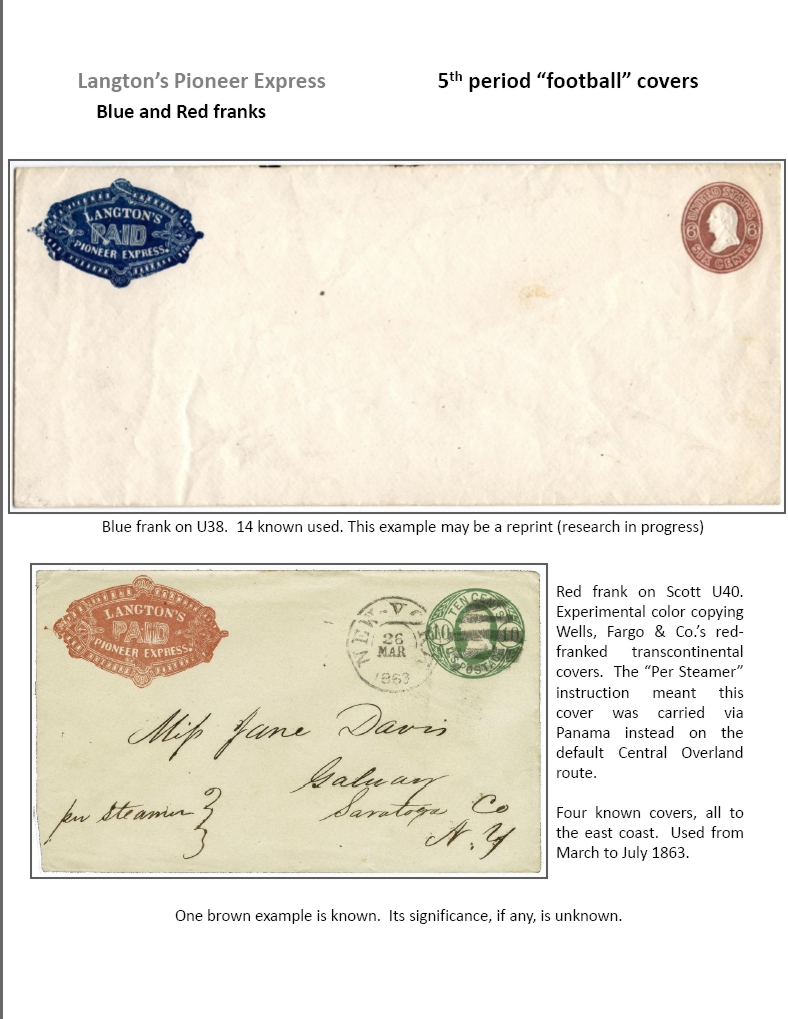 Langton's Pioneer Express
5th period “football” covers
Blue and Red franks
LANGTON'S
PAID
PIONEER EXPRESS.
UNITED STATES
6 6
SIX CENTS
Blue frank on U38.  14 known used. This example may be a reprint (research in progress)
LANGTON'S
PAID
PIONEER EXPRESS.
NEW-YO
26
MAR
1863
TEN CENTS
10 10
U.S. POSTAGE
Miss Jane Davis
Galway
Saratoga Co
N. Y
per steamer
Red frank on Scott U40.
Experimental color copying
Wells, Fargo & Co.'s red-
franked transcontinental
covers.  The “Per Steamer”
instruction meant this
cover was carried via
Panama instead on the
default Central Overland
route.
Four known covers, all to
the east coast.  Used from
March to July 1863.
One brown example is known.  Its significance, if any, is unknown.